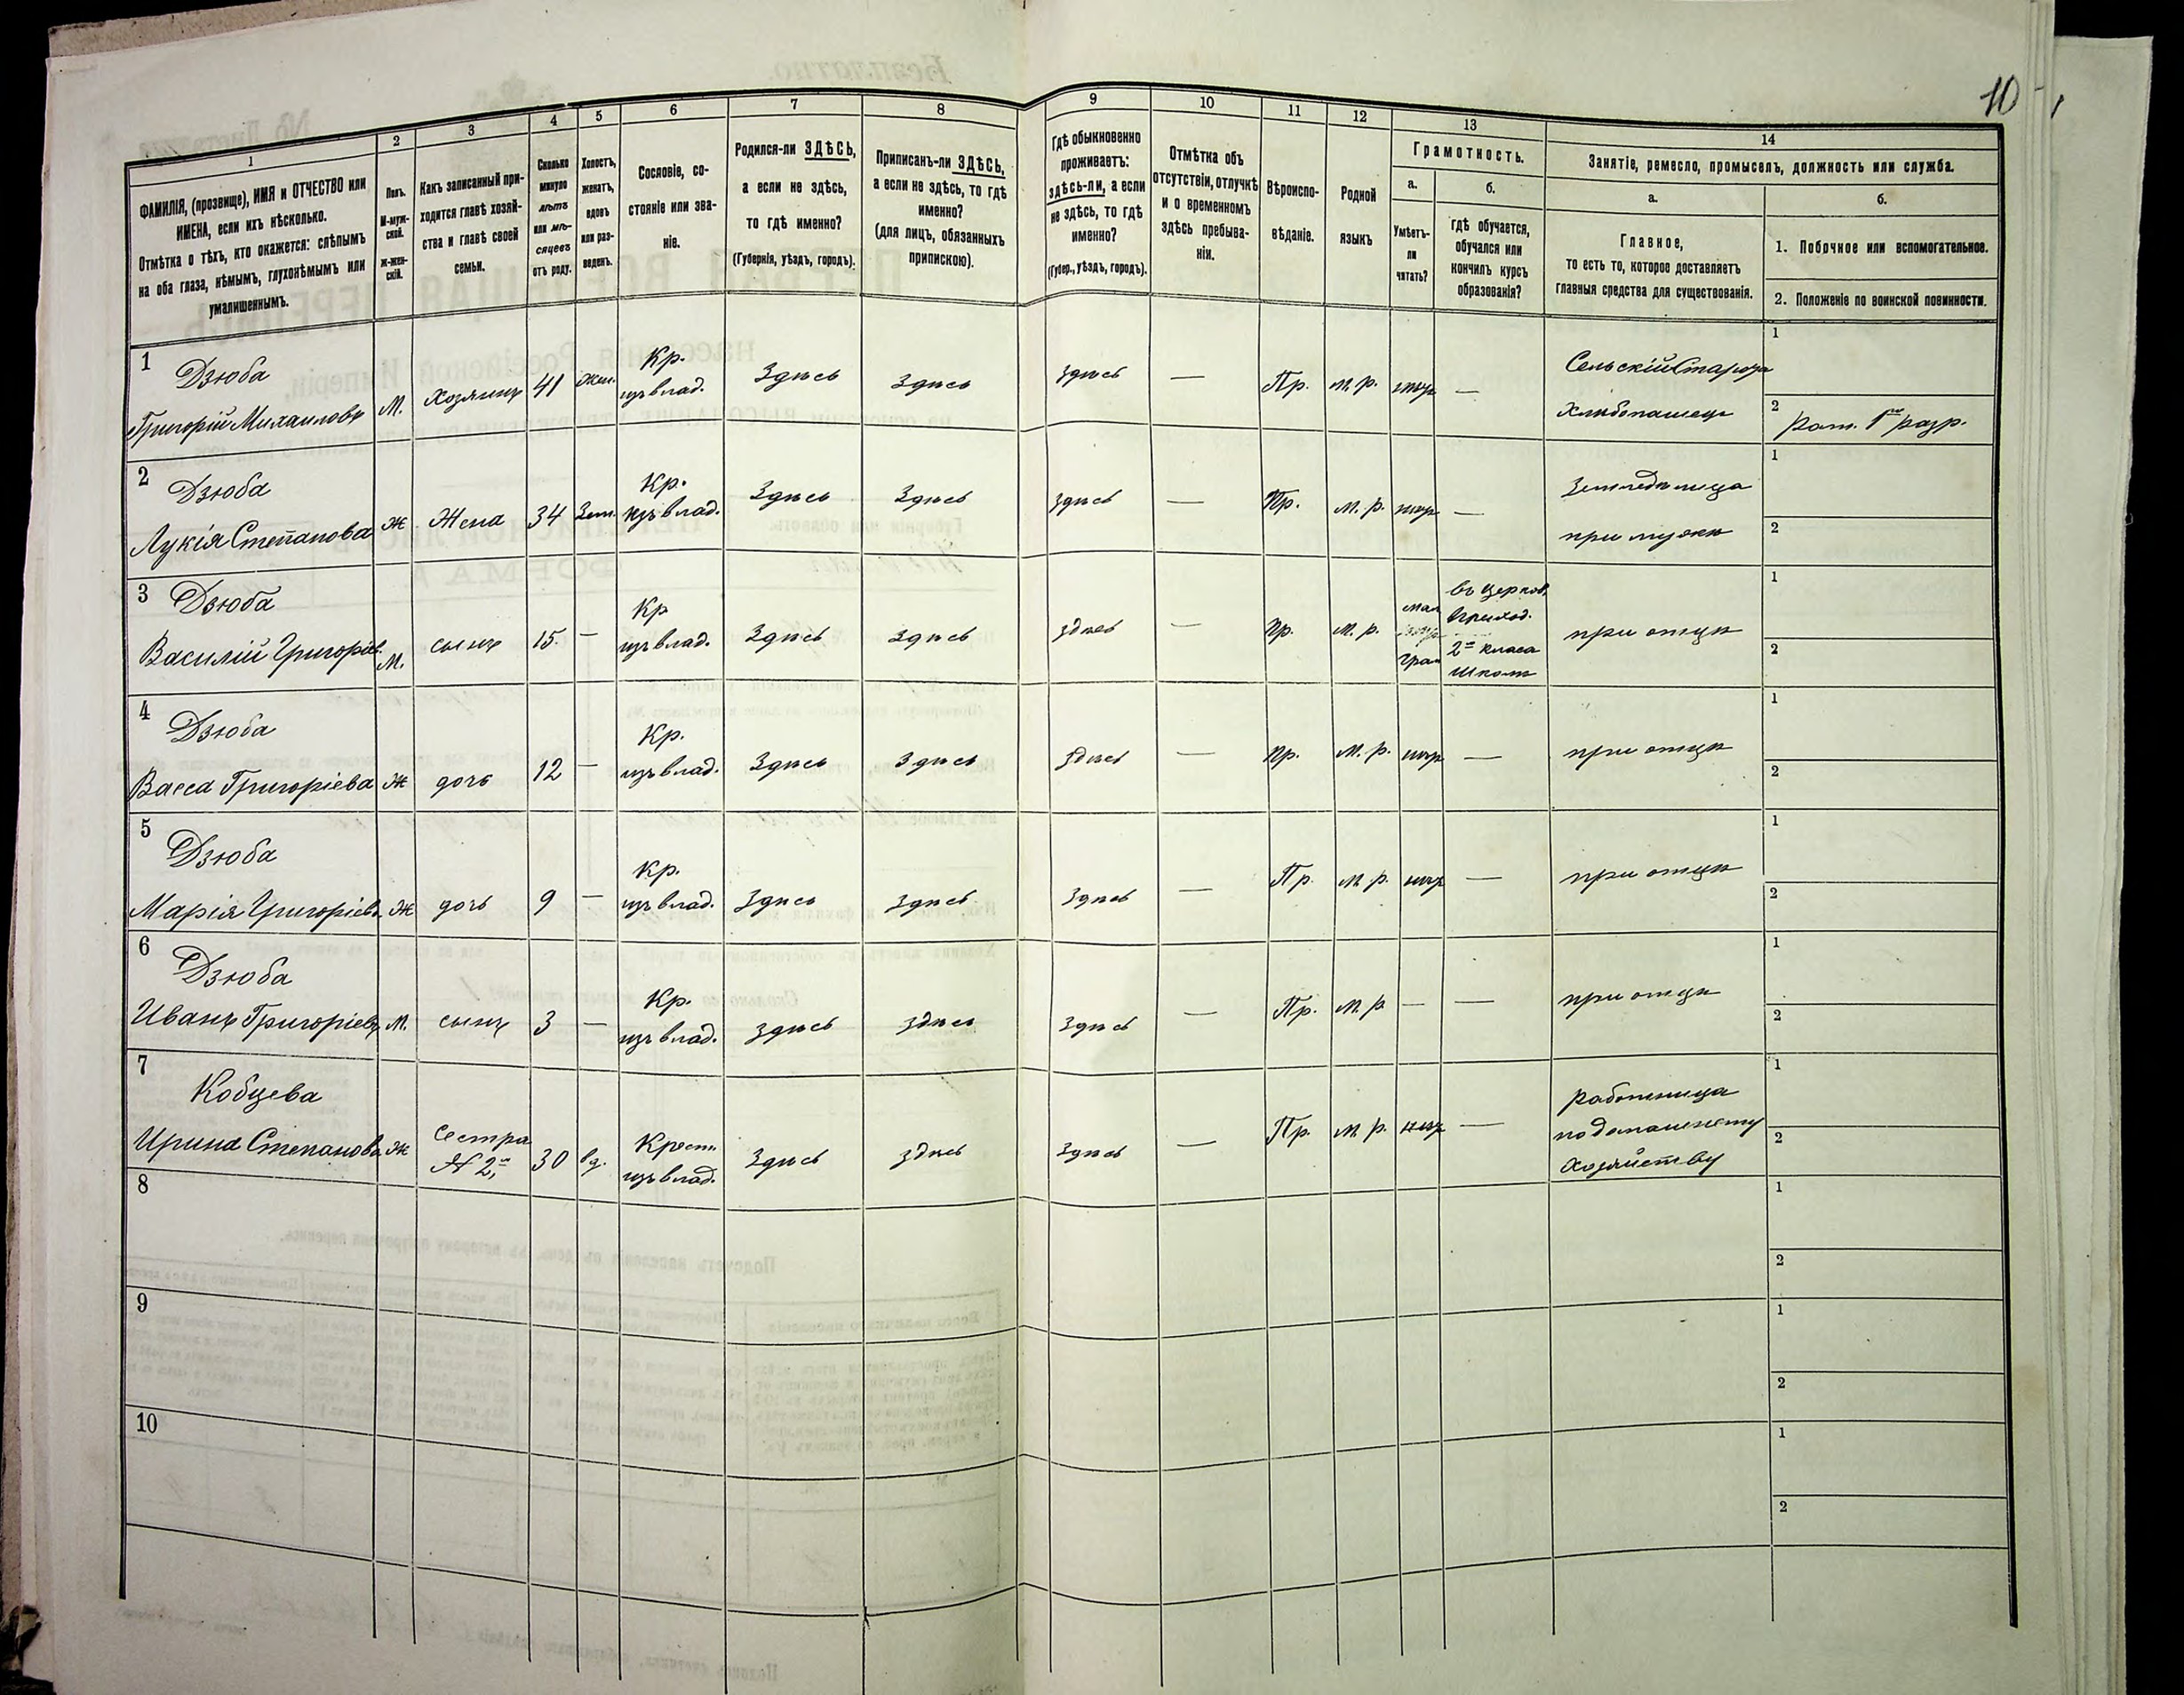 10
1
2
3
4
5
6
7
8
9
10
11
12
13
14
ФАМИЛІЯ, (прозвище), ИМЯ и ОТЧЕСТВО или
ИМЕНА, если ихъ нѣсколько.
Отмѣтка о тѣхъ, кто окажется: слѣпымъ
на оба глаза, нѣмымъ, глухонѣмымъ или
умалишеннымъ.
Полъ.
М-муж-
ской.
ж-жен-
скій.
Какъ записанный при-
ходится главѣ хозяй-
ства и главѣ своей
семьи.
Сколько
минуло
лѣтъ
или мѣ-
сяцевъ
отъ роду.
Холостъ,
женатъ,
вдовъ
или раз-
веденъ.
Сословіе, со-
стояніе или зва-
ніе.
Родился-ли ЗДѢСЬ,
а если не здѣсь,
то гдѣ именно?
(Губернія, уѣздъ, городъ).
Приписанъ-ли ЗДѢСЬ,
а если не здѣсь, то гдѣ
именно?
(для лицъ, обязанныхъ
припискою).
Гдѣ обыкновенно
проживаетъ:
здѣсь-ли, а если
не здѣсь, то гдѣ
именно?
(Губер., уѣздъ, городъ).
Отмѣтка объ
отсутствіи, отлучкѣ
и о временномъ
здѣсь пребыва-
ніи.
Вѣроиспо-
вѣданіе.
Родной
языкъ
Грамотность.
а.
Умѣетъ-
ли
читать?
б.
гдѣ обучается,
обучался или
кончилъ курсъ
образованія?
Занятіе, ремесло, промыселъ, должность или служба.
а.
Главное,
то есть то, которое доставляетъ
главныя средства для существованія.
б.
1. Побочное или вспомогательное.
2. Положеніе по воинской повинности.
1
Дзюба
Григорій Михаиловъ
М.
Хозяинъ
41
жен.
Кр.
изъ влад.
Здѣсь
Здѣсь
здѣсь
—
Пр.
м. р.
нѣтъ
—
Сельскій Староста
Хлѣбопашецъ
1
2
Рат. 1го разр.
2
Дзюба
Лукія Степанова
Ж
Жена
34
Зам.
Кр.
изъ влад.
Здѣсь
Здѣсь
здѣсь
—
Пр.
м. р.
нѣтъ
—
Земледѣлица
при мужѣ
1
2
3
Дзюба
Василій Григоріев.
М.
сынъ
15.
—
Кр
изъ влад.
Здѣсь
Здѣсь
здѣсь
—
Пр.
м. р.
мал
грам
въ церков.
приход.
2х класа
школѣ
при отцѣ
1
2
4
Дзюба
Васса Григоріева
Ж
дочь
12
—
Кр.
изъ влад.
Здѣсь
Здѣсь
здѣсь
—
Пр.
м. р.
нѣтъ
—
при отцѣ
1
2
5
Дзюба
Марія Григоріева
Ж
дочь
9
—
Кр.
изъ влад.
Здѣсь
Здѣсь
Здѣсь
—
Пр.
м. р.
нѣтъ
—
при отцѣ
1
2
6
Дзюба
Иванъ Григоріевъ
М.
сынъ
3
—
Кр.
изъ влад.
здѣсь
здѣсь
здѣсь
—
Пр.
м. р
—
—
при отцѣ
1
2
7
Кобцева
Ирина Степанова
Ж
Сестра
№ 2го
30
вд.
Крест.
изъ влад.
Здѣсь
здѣсь
здѣсь
—
Пр.
м. р.
нѣтъ
—
работница
по домашнему
хозяйству
1
2
8
1
2
9
1
2
10
1
2